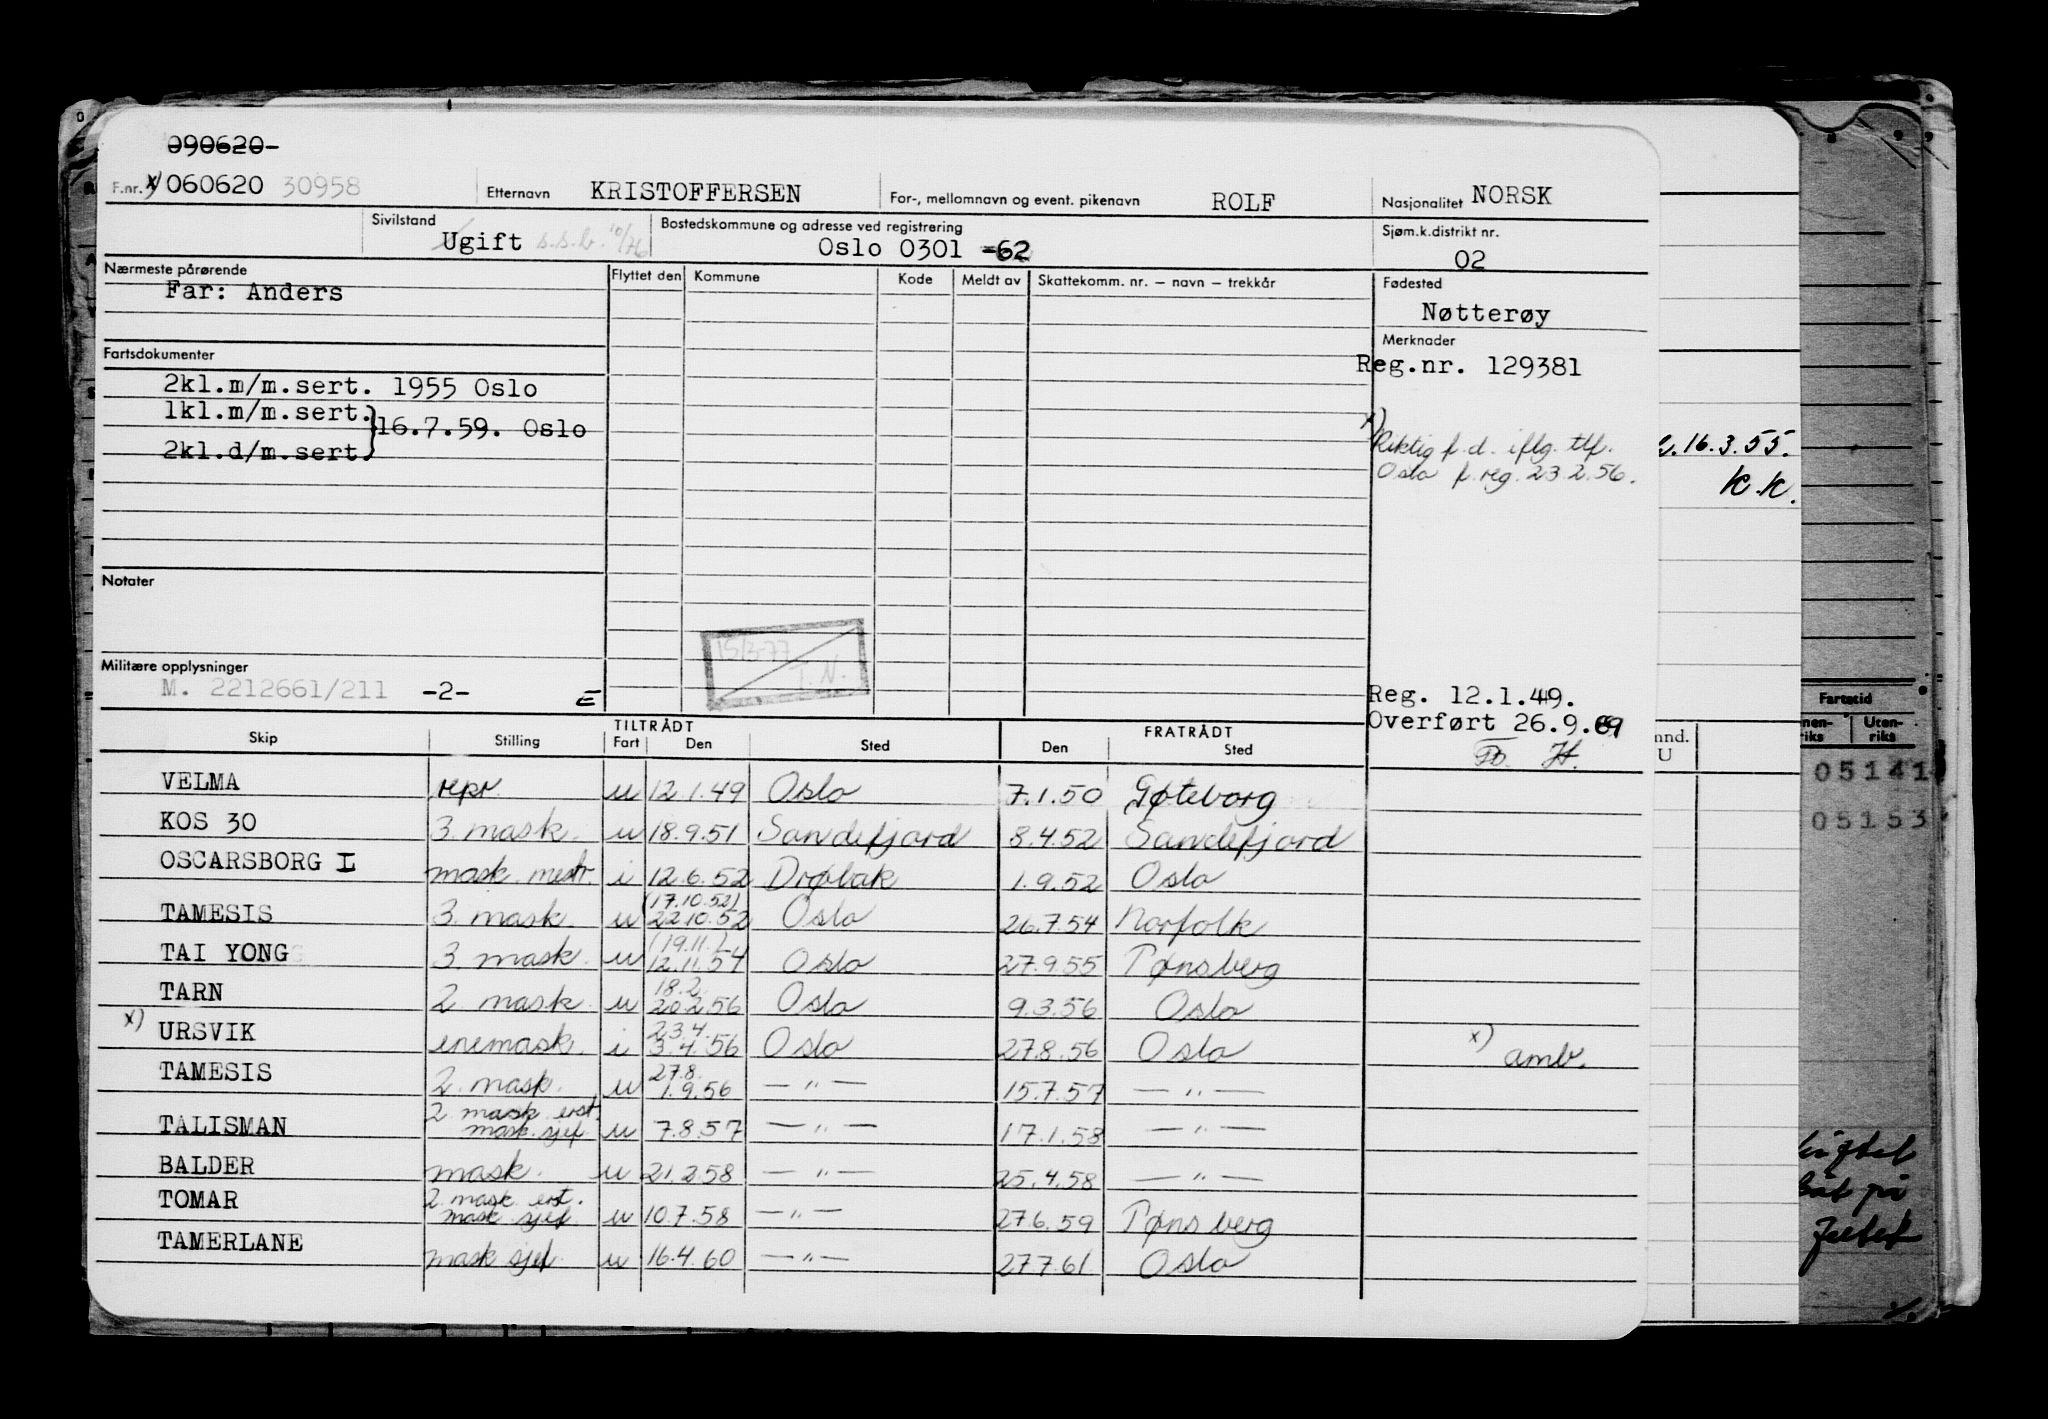 090620-
F.nr. x) 060620 30958 Etternavn KRISTOFFERSEN For-, mellomnavn og event. pikenavn ROLF Nasjonalitet NORSK
Sivilstand Ugift s.s.b. 10/76 Bostedskommune og adresse ved registrering Oslo 0301 -62 Sjøm.k.distrikt nr. 02
Nærmeste pårørende Flyttet den Kommune Kode Meldt av Skattekomm. nr. – navn – trekkår Fødested
Far: Anders Nøtterøy
Merknader
Fartsdokumenter Reg.nr. 129381
2kl.m/m.sert. 1955 Oslo
1kl.m/m.sert.
16.7.59. Oslo
2kl.d/m.sert
x) Riktig f.d. iflg. tlf.
Oslo f.reg. 23.2.56.
16.3.55.
K.K.
Notater
15/3-77
T.N.
Militære opplysninger
M. 2212661/211 -2- E
Reg. 12.1.49.
Overført 26.9.69
TILTRÅDT FRATRÅDT
Skip Stilling Fart Den Sted Den Sted
VELMA repr. u 12.1.49 Oslo 7.1.50 Gøteborg
KOS 30 3. mask. u 18.9.51 Sandefjord 8.4.52 Sandefjord
OSCARSBORG I mask. mestr. i 12.6.52 Drøbak 1.9.52 Oslo
(17.10.52)
TAMESIS 3. mask. u 22.10.52 Oslo 26.7.54 Norfolk
(19.11.)
TAI YONG 3. mask. u 12.11.54 Oslo 27.9.55 Tønsberg
18.2.
TARN 2. mask. u 20.2.56 Oslo 9.3.56 Oslo
23.4.
x) URSVIK enemask. i 3.4.56 Oslo 27.8.56 Oslo x) amb.
27.8.
TAMESIS 2. mask. u 1.9.56 — " — 15.7.57 — " —
2. mask erst.
TALISMAN mask. sjef u 7.8.57 — " — 17.1.58 — " —
BALDER mask. u 21.2.58 — " — 25.4.58 — " —
2. mask erst.
TOMAR mask sjef. u 10.7.58 — " — 27.6.59 Tønsberg
TAMERLANE mask sjef. u 16.4.60 — " — 27.7.61 Oslo
mnd.
U
Fartstid
Uten-
riks
05141
05153